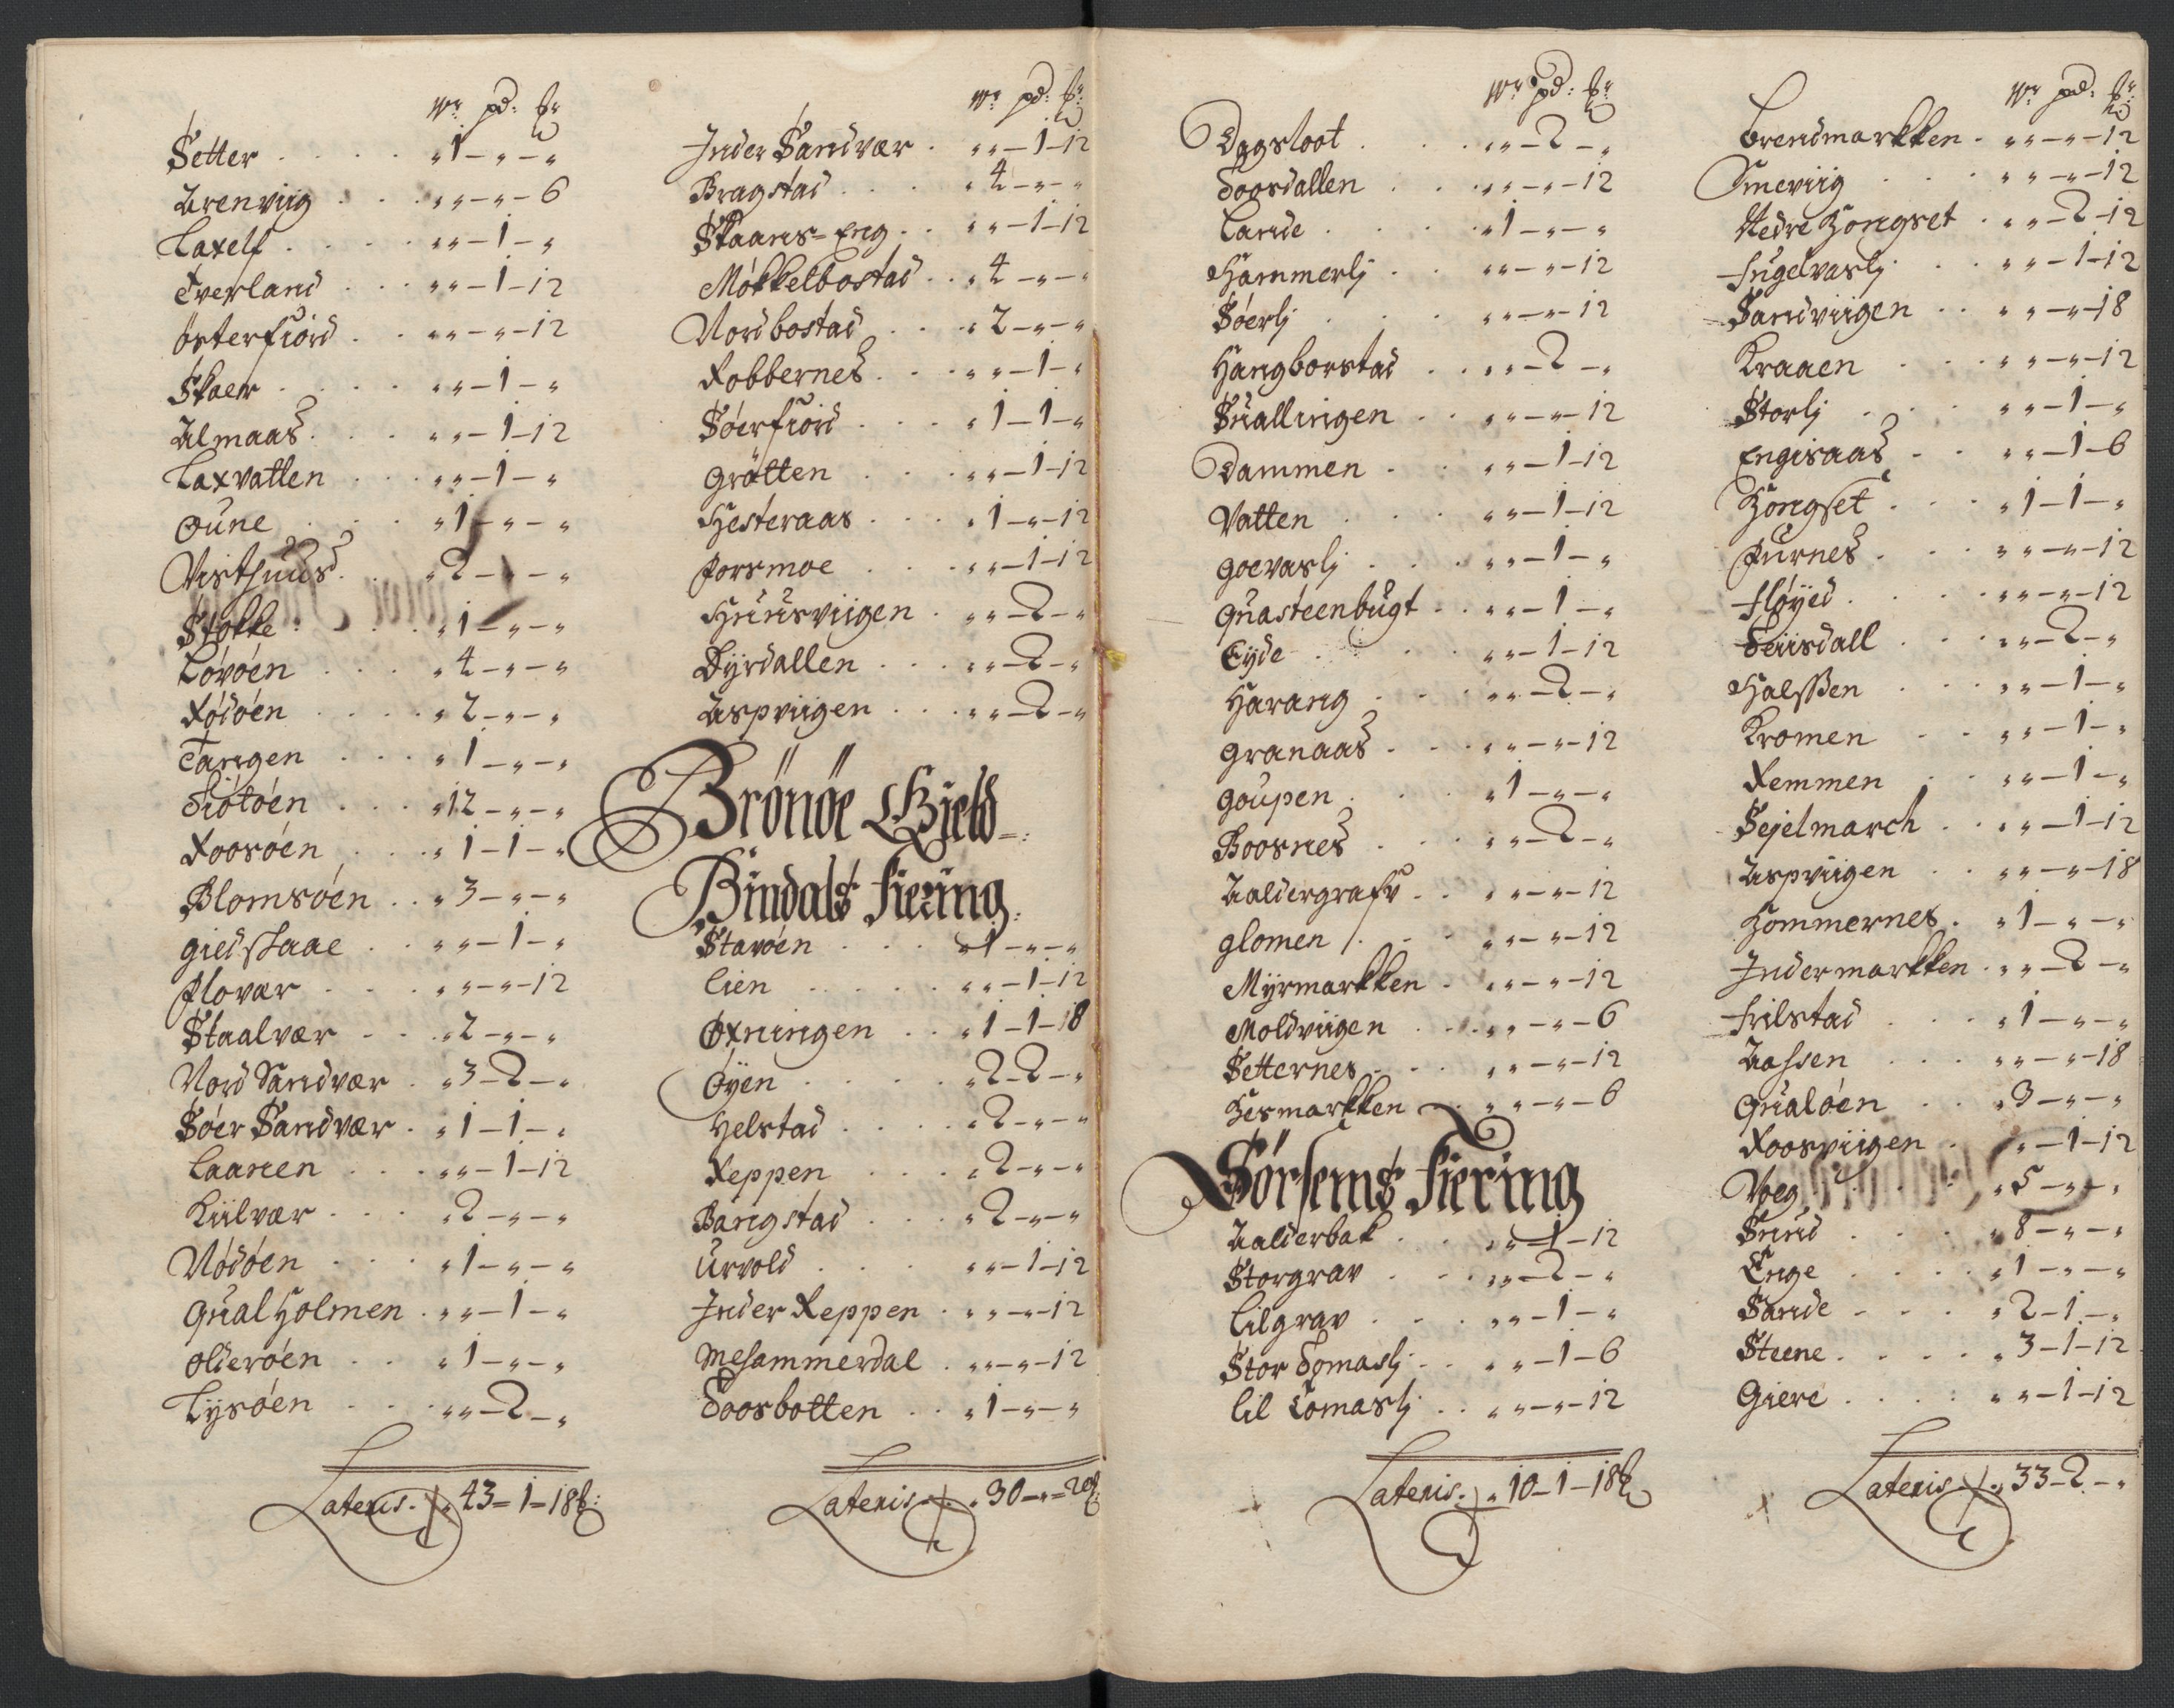 Wr pd: lr
Setter . . . . „1-„-„
Urenviig . . . „„-„-6
Laxelf . . . . „„-1-„
Tverland . . . „„-1-12
Østerfiord . . „„-„-12
Skaer . . . . „„-1-„
Almaas . . . „„-1-12
Laxvatten . . „„-1-„
Oune . . . „1-„-„
Visthuus . . „2-„-„
Støkke . . . „1-„-„
Løvøen . . . „4-„-„
Rødøen . . . „2-„-„
Tangen . . . „1-„-„
Tiøtøen . . . „12-„-„
Roosøen . . . „1-1-„
Blomsøen . . „3-„-„
Giedskaae . . „„-1-„
Flovær . . . „„-„-12
Skaalvær . . „2-„-„
Nord Sandvær . „3-2-„
Søer Sandvær . „1-1-„
Laanen . . . „„-1-12
Kiilvær . . . „2-„-„
Nødøen . . . „1-„-„
Qual Holmen . „„-1-„
Olderøen . . „1-„-„
Lysøen . . . „„-2-„
Lateris . „43-1-18 lb:
Wr pd: lr
Inder Sandvær . „„-1-12
Bragstad . . . „4-„-„
Skaans-Eng . . „„-1-12
Møkkelbostad . . „4-„-„
Nordbostad . . „2-„-„
Robbernes . . . „„-1-„
Søerfiord . . . „1-1-„
Grøtten . . . „„-1-12
Hesteraas . . . „1-„-12
Forsmoe . . . „„-1-12
Huusviigen . „„-2-„
Dyrdallen . . . „„-2-„
Aspviigen . . . „„-2-„
Brønøe Gield
Bindals fiering
Stavøen . . . „1-„-„
Lien . . . . „„-1-12
Øxningen . . „1-1-18
Øyen . . . . „2-2-„
Helstad . . . . „2-„-„
Reppen . . . „2-„-„
Bangstad . . . „2-„-„
Urvold . . . „„-1-12
Inder Reppen . „„-„-12
Mesammerdal . „„-„-12
Toosbotten . . „1-„-„
Lateris . „30-„-20
Wr pd: lr
Dagsloot . . . „„-2-„
Toosdallen . . . „„-„-12
Lande . . . . „1-„-„
Hammerlj . . „„-„-12
Søerlj . . . „„-„-12
Hangborstad . . „„-2-„
Suallingen . . „„-„-12
Dammen . . . „„-1-12
Vatten . . . „„-1-12
Goevaslj . . . „„-1-„
Quasteenbugt . . „„-1-„
Eyde . . . „„-1-12
Harang . . . „„-2-„
Granaas . . . „„-„-12
Goupen . . . „1-„-„
Boosnes . . . „„-2-„
Aaldergrafv . . „„-„-12
Glomen . . . „„-„-12
Myrmarkken . „„-„-12
Moldviigen . . „„-„-6
Setternes . . . „„-„-12
Hesmarkken . „„-„-6
Sørsems fiering
Aalderbak . . „„-1-12
Storgrav . . . „„-2-„
Lilgrav . . . „„-1-„
Stor Tomaslj . . „„-1-6
Lil Tomaslj . . „„-„-12
Lateris . „10-1-18
Wr pd: lr
Brendmarkken . „„-„-12
Smeviig . . . „„-„-12
Nedre Hongset . „„-2-12
Fugelvaslj . . „„-1-12
Sandviigen . . „„-„-18
Kraaen . . . „„-„-12
Storlj . . . „„-1-„
Engisaas . . „„-1-6
Hongset . . . „1-1-„
Furnes . . . „„-„-12
Fløyed . . . . „„-„-12
Teiisdall . . . „„-2-„
Halssen . . . „„-1-„
Kromen . . „„-1-„
Remmen . . „„-1-„
Sejelmarch . . „„-1-12
Aspviigen . . „„-„-18
Hommernes . „1-„-„
Indermarkken . „„-2-„
Frilstad . . . „1-„-„
Aassen . . . „„-„-18
Qualøen . . „3-„-„
Roosviigen . „„-1-12
Voeg . . . „5-„-„
Sund . . . „8-„-„
Enge . . . . „1-„-„
Sande . . . „2-1-„
Steene . . . . „3-1-12
Giere . . . . „„-1-12
Lateris . „33-2-„